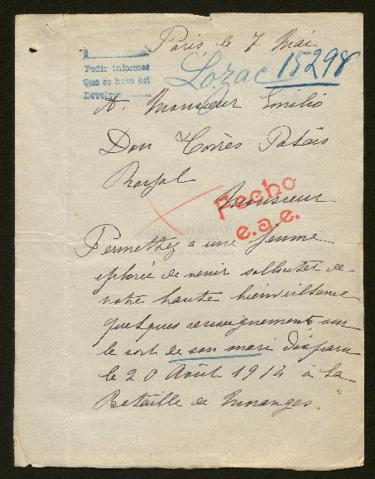 Paris, le 7 Mai
A
Pedir informes
Que se hace así
Devolver
Lozac 15298
A. Monsieur Emilio
Don Torrès Palais
Royal
Monsieur
Hecho
e.a.e.
Permettez a une femme
eplorée de venir solliciter de
votre haute bienveillance
quelques renseignements sur
le sort de son mari disparu
le 20 Août 1914 à la
Bataille de Moranges.